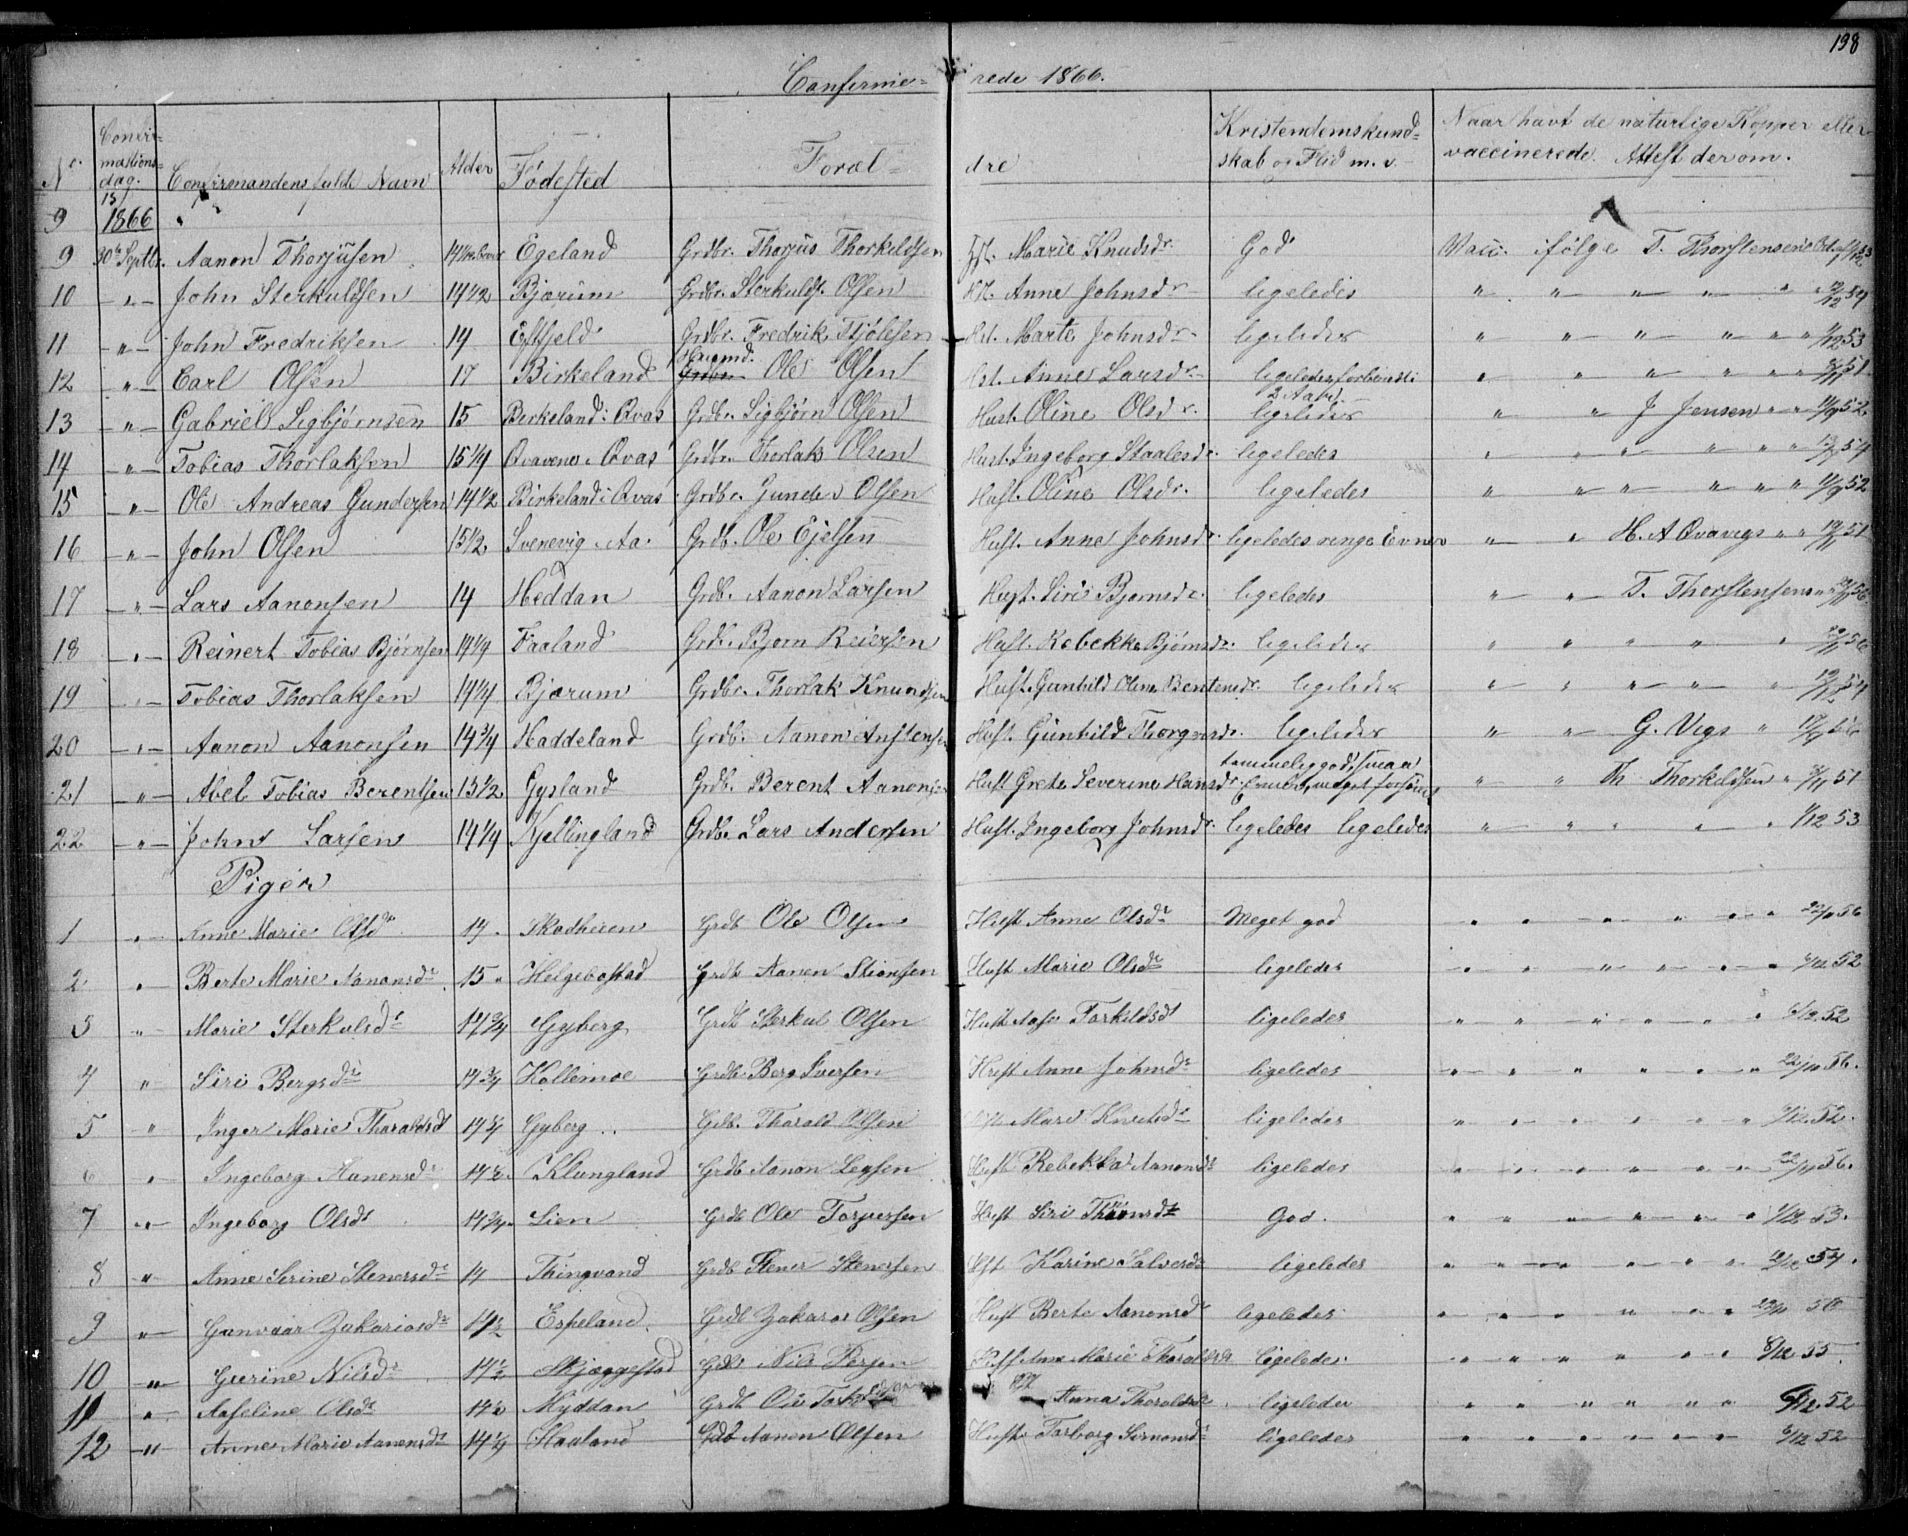 198
Confirmerede 1866.
No. Confirmationsdag. Confirmandens fulde Navn Alder Fødested Forældre Kristendomskundskab og Flid m. v. Naar havt de naturlige Kopper eller vaccinerede. Attest derom.
9 1866
9 30te Septbr. Aanon Thorjusen Egeland Grdbr. Thorjus Thorkildsen Hst. Marie Knudsdr. God Vacc. ifølge T. Thorstensens
10 -"- John Sterkuldsen 14 1/2 Bjærum Grdbr. Sterkuld Olsen Hst. Anne Johnsdr. ligeledes " " " " " 54
11 -"- John Fredriksen 14 Eftsjeld Grdbr. Fredrik Hst. Marte Johnsdr. ligeledes " " " " " " " 1/12 53
12 -"- Carl Olsen 17 Birkeland Huusmd. Ole Olsen Hst. Anne Larsdr. ligeledes " " " " " " 51
13 -"- Gabriel Sigbjørnsen 15 Berkeland i Qvas Grdbr. Sigbjørn Olsen Hust. Oline Olsdr. ligeledes " " J Jensen " " 11/9 52
14 -"- Tobias Thorlaksen 15 1/4 Qvavene i Qvas Grdbr. Thorlak Olsen Hust. Ingeborg Staalesdr. ligeledes " " " " " " 54
15 -"- Ole Andreas Gundersen 14 1/2 Birkeland i Qvas Grdbr. Gunder Olsen Hust. Oline Olsdr. ligeledes " " " " " " " 11/9 52
16 -"- John Olsen 15 1/2 Svenevig i Aa. Grdb. Ole Ejelsen Hust. Anne Johnsdr. ligeledes ringe Evner " " H. A Qvavigs " " 51
17 -"- Lars Aanonsen 14 Heddan Grdb. Aanon Larsen Hust. Siri Bjornsdr. ligeledes " " T. Thorstensens " 56
18 -"- Reinert Tobias Bjørnsen 14 1/4 Faaland Grdb. Bjorn Reiersen Hust. Rebekka Bjørnsdr. ligeledes " " " " " 56
19 -"- Tobias Thorlaksen 14 1/4 Bjærum Grdbr. Thorlak Knundsen Hust. Gunhild Oline Bentensdr. ligeledes " " " " " " 54
20 -"- Aanon Aanonsen 14 3/4 Haddeland Grdb. Aanon Anstensen Hust. Gunhild ligeledes " " G. Vigs "
21 -"- Abel Tobias Berentsen 15 1/2 Gysland Grdb. Berent Aanonsen Hust Grete Severine Hansdr. temmelig god, smaa Evner, meget forsømt " " Th Thorkildsen " 51
22 -"- John Larsen 14 1/4 Kjellingland Grdb. Lars Andersen Hust. Ingeborg Johnsdr. ligeledes ligeledes " " " " " 1/12 53
Piger
1 " Anne Marie Olsdr. 14 Skodheien Grdb Ole Olsen Hust Anne Olsdr. Meget god " " " " " " 56
2 " Berte Marie Aanonsdr. 15 Helgebostad Grdb Aanen Stionsen Hust Marie Olsdr. ligeledes " " " " " " 6/12 52
3 " Marie Sterkulsdr. 14 3/4 Gyberg Grdb Sterkul Olsen Hust Aase Torkildsdr ligeledes " " " " " " 6/12 52
4 " Siri Bergsdr. 14 3/4 Hollemoe Grdb. Berg Iversen Hust Anne Johnsdr. ligeledes " " " " " " 56.
5 " Inger Marie Tharaldsdr 14 3/4 Gyberg Grdb. Tharald Olsen Hust Mari Knudsdr. ligeledes " " " " " " 6/12 52.
6 " Ingeborg Aanensdr. 14 1/2 Klungland Grdb Aanon Hust Rebekka Aanonsdr ligeledes " " " " " " 56.
7 " Ingeborg Olsdr 14 3/4 Lien Grdb Ole Torjersen Hust Siri God. " " " " " " 1/12 53.
8 " Anne Serine Stenersdr. 14 Thingvand Grdb Stener Stenersen Hst Karine Salvesdr ligeledes " " " " " " 54.
9 " Gunvaar Zakariasdr. 14 1/2 Espeland. Grdb Zakarias Olsen Hust Berte Aanonsdr ligeledes " " " " " " 56
10 " Gurine Nilsdr. 14 1/2 Skjæggestad Grdb Nils Persen Hust Ane Marie Tharaldsdr ligeledes " " " " " " 8/12 55.
11 " Aaseline Olsdr. 14 1/2 Myddan Grdb Ole Anna Tharaldsdr ligeledes " " " " " " 6/12 52
12 " Anne Marie Aanensdr. 14 1/4 Haaland Grdb Aanon Olsen Hust Torborg Simonsdr ligeledes " " " " " " 6/12 52